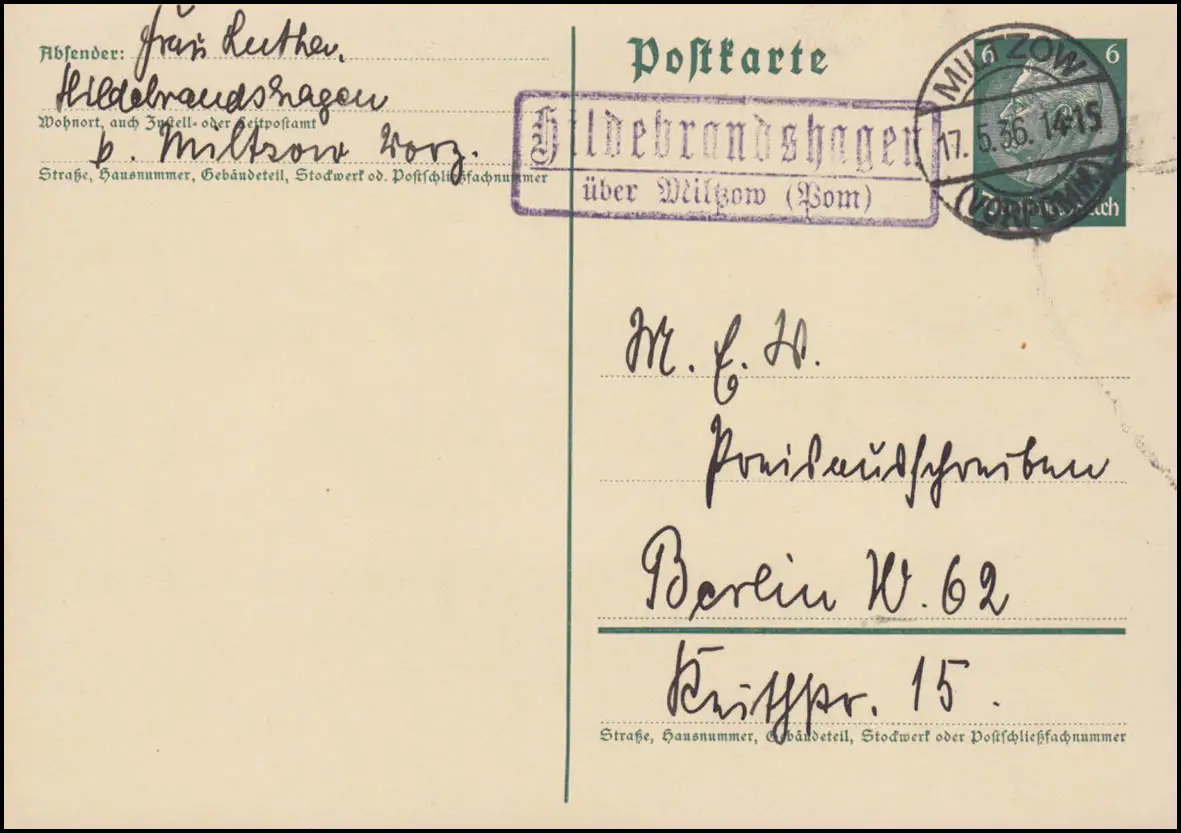 Absender: Frau Luther.
Hildebrandshagen
Wohnort, auch Zustell- oder Leitpostamt
b. Miltzow Vorp.
Straße, Hausnummer, Gebäudeteil, Stockwerk od. Postschließfachnummer
Postkarte
Hildebrandshagen
über Miltzow (Pom)
6 6
MILTZOW
17.5.36. 14-15
(VORPOMM)
Deutsches Reich
M. E. W.
Preisausschreiben
Berlin W. 62
Keithstr. 15.
Straße, Hausnummer, Gebäudeteil, Stockwerk oder Postschließfachnummer